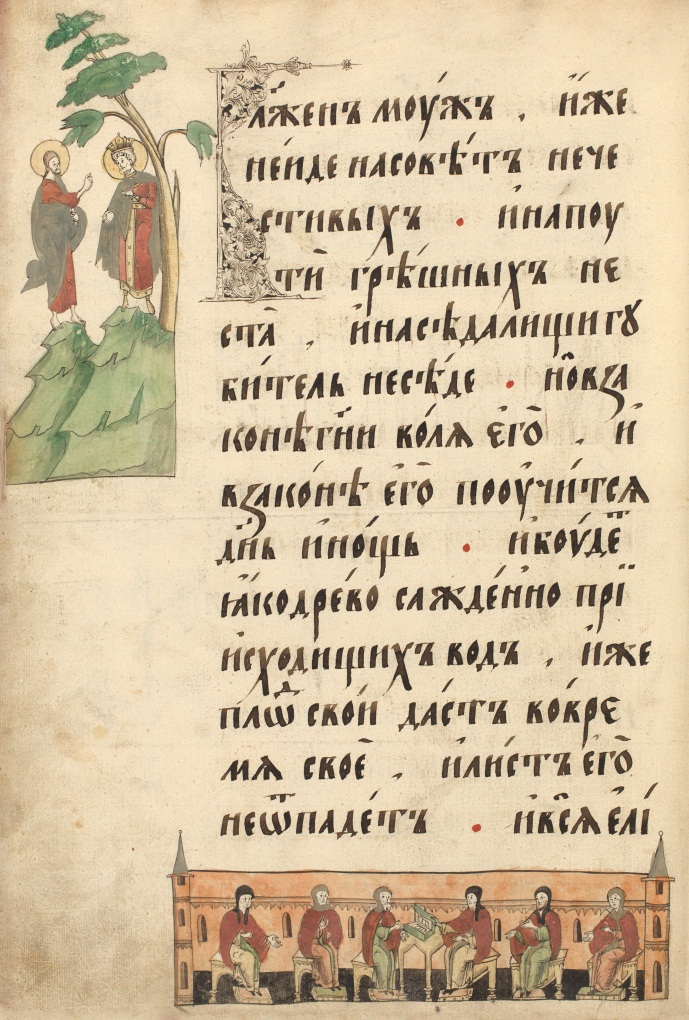 Бл҃же́нъ моу́жъ , и҆́же
неи́де насовѣ́тъ нече
сти́выхъ . и҆напоу
ти̑ грѣ́шныхъ не
ста̀ , и҆насѣда́лищи гꙋ
би́тель несѣ́де . но̑ вза
ко́нѣ гн҃и во́лѧ є҆гѡ̀ , и҆
взако́нѣ є҆гѡ̀ пооучи́тсѧ
дн҃ь и҆но́щь . и҆боу́де т
ꙗ҆́кодре́во сажде́нно при
и҆схо́дищихъ во́дъ , и҆́же
пло́д сво́й да́стъ во́вре
мѧ своѐ , и҆ли́стъ є҆гѡ̀
неѿпаде́тъ . и҆всѧ̑ є҆ли́